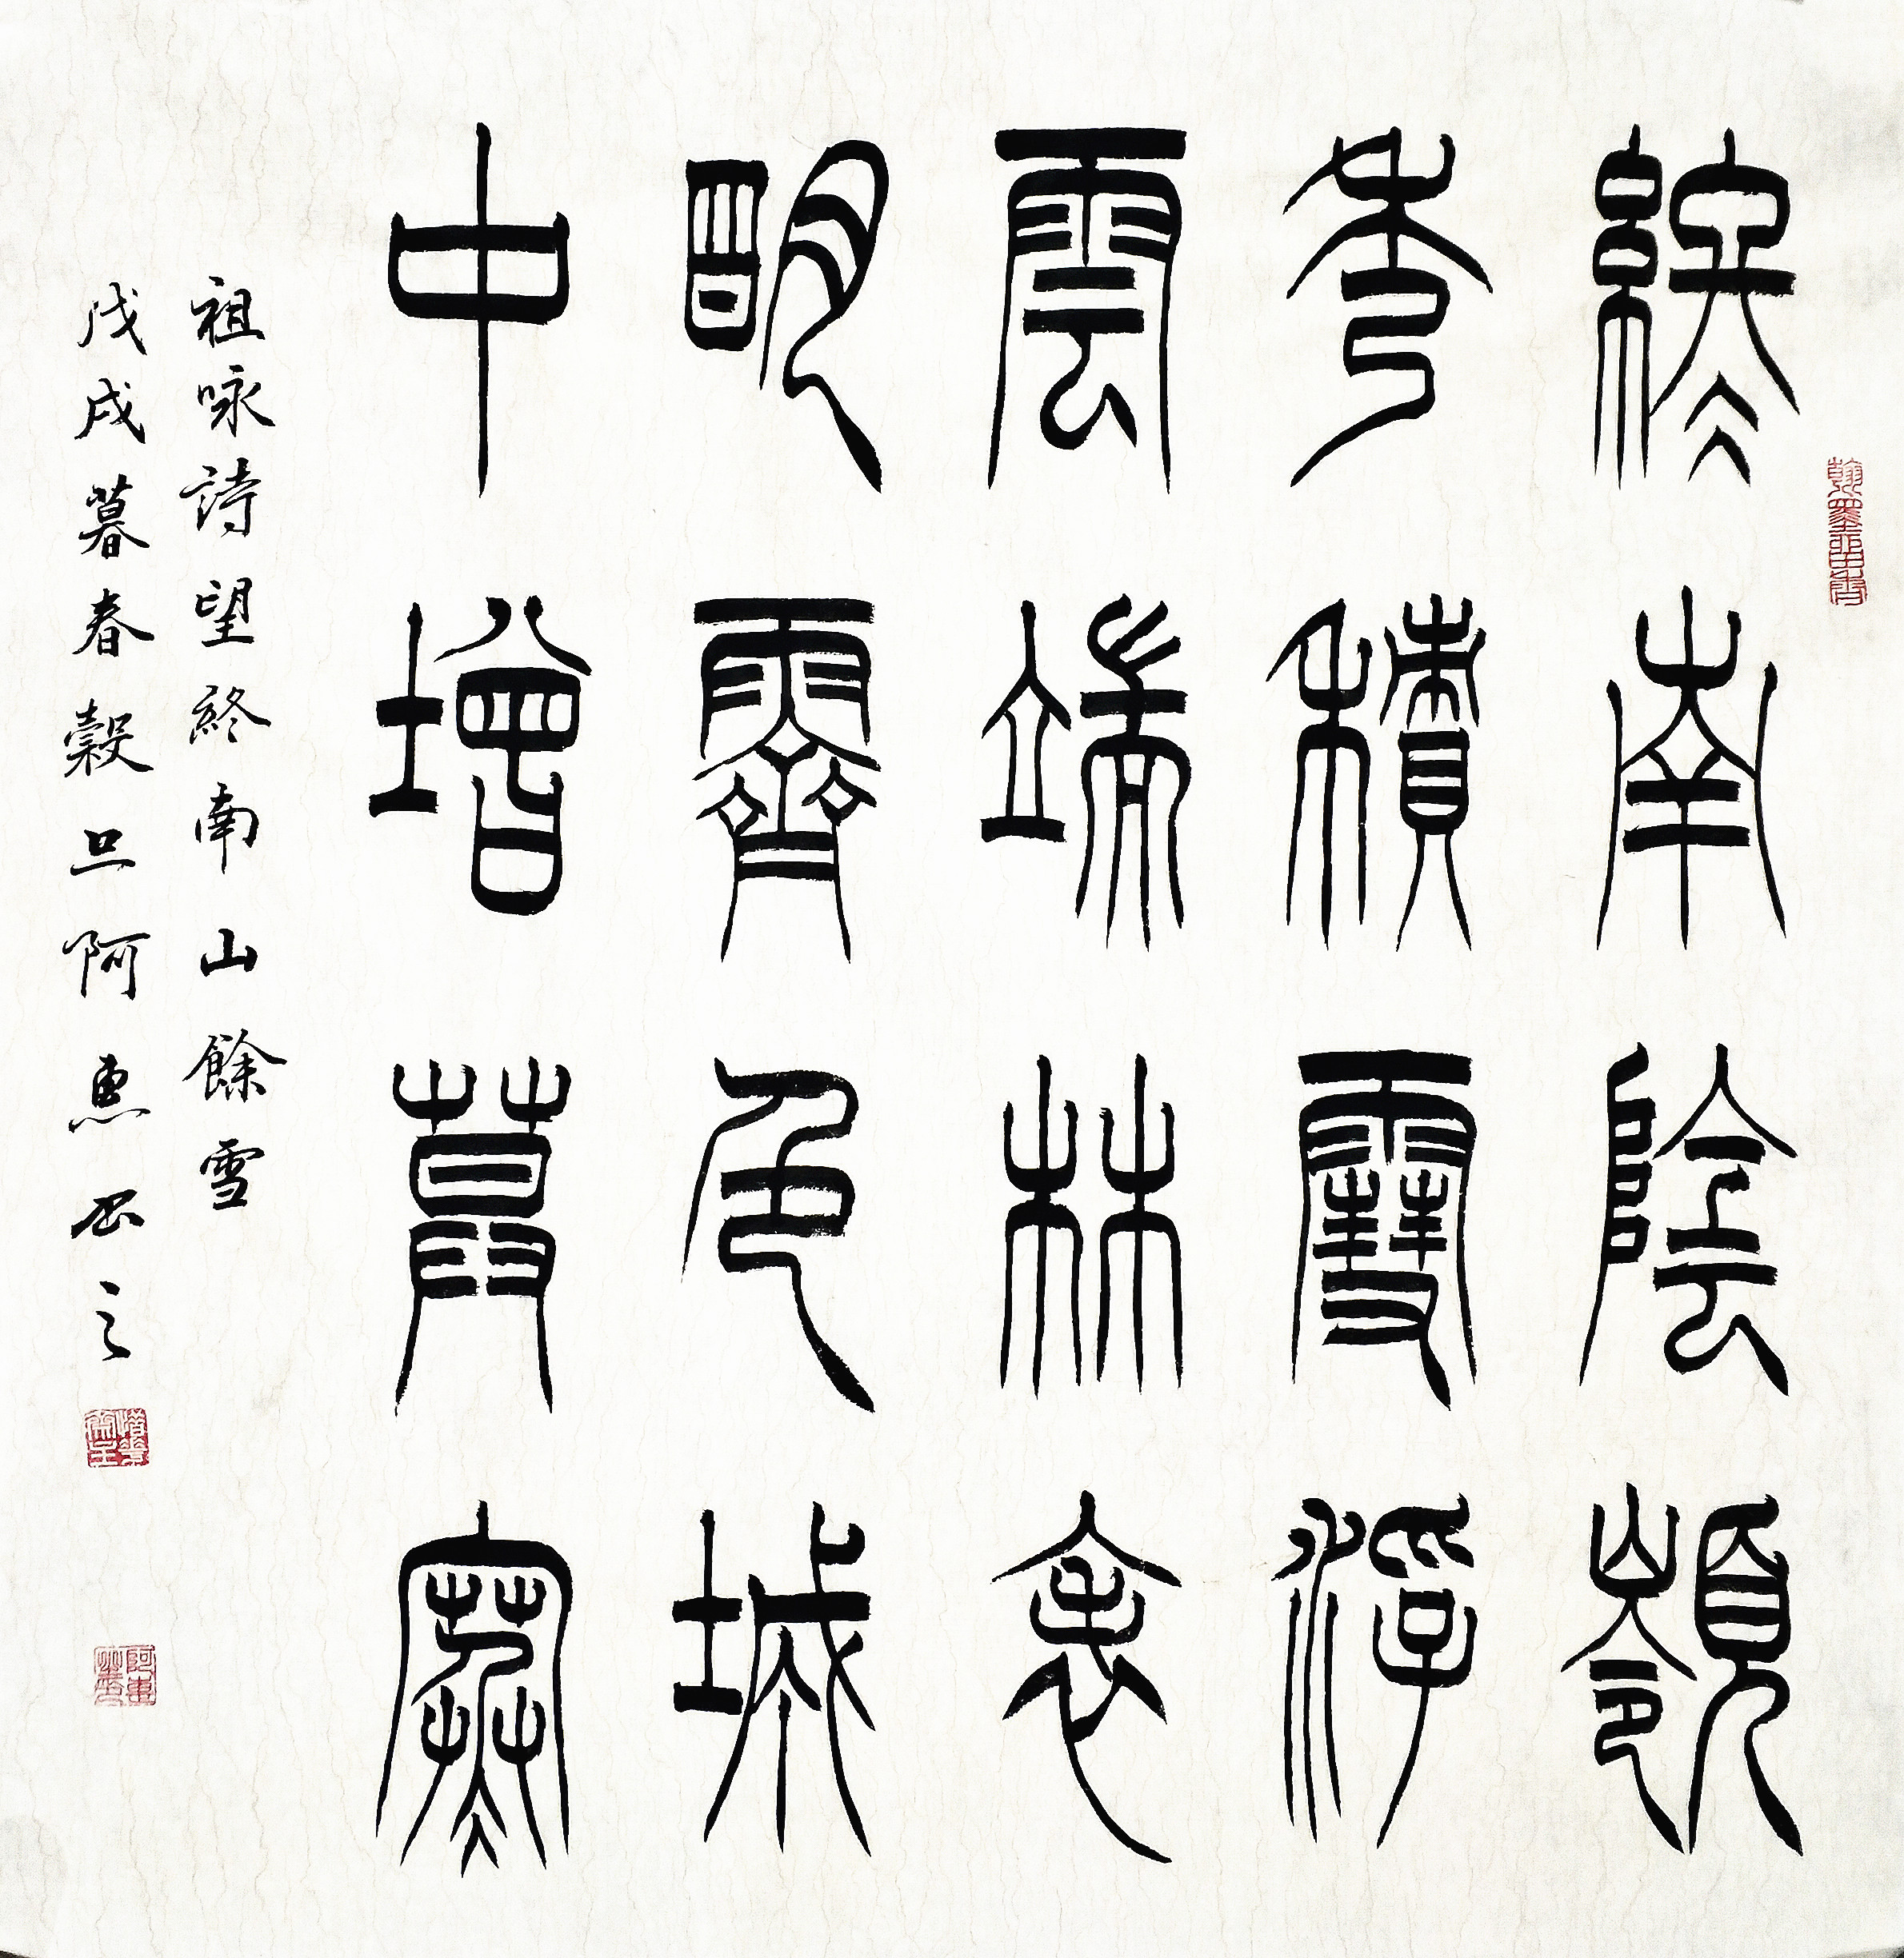 終南陰嶺
秀積雪浮
雲端林表
明霽色城
中增暮寒
祖咏詩望終南山餘雪
戊戌暮春穀旦阿惠書之